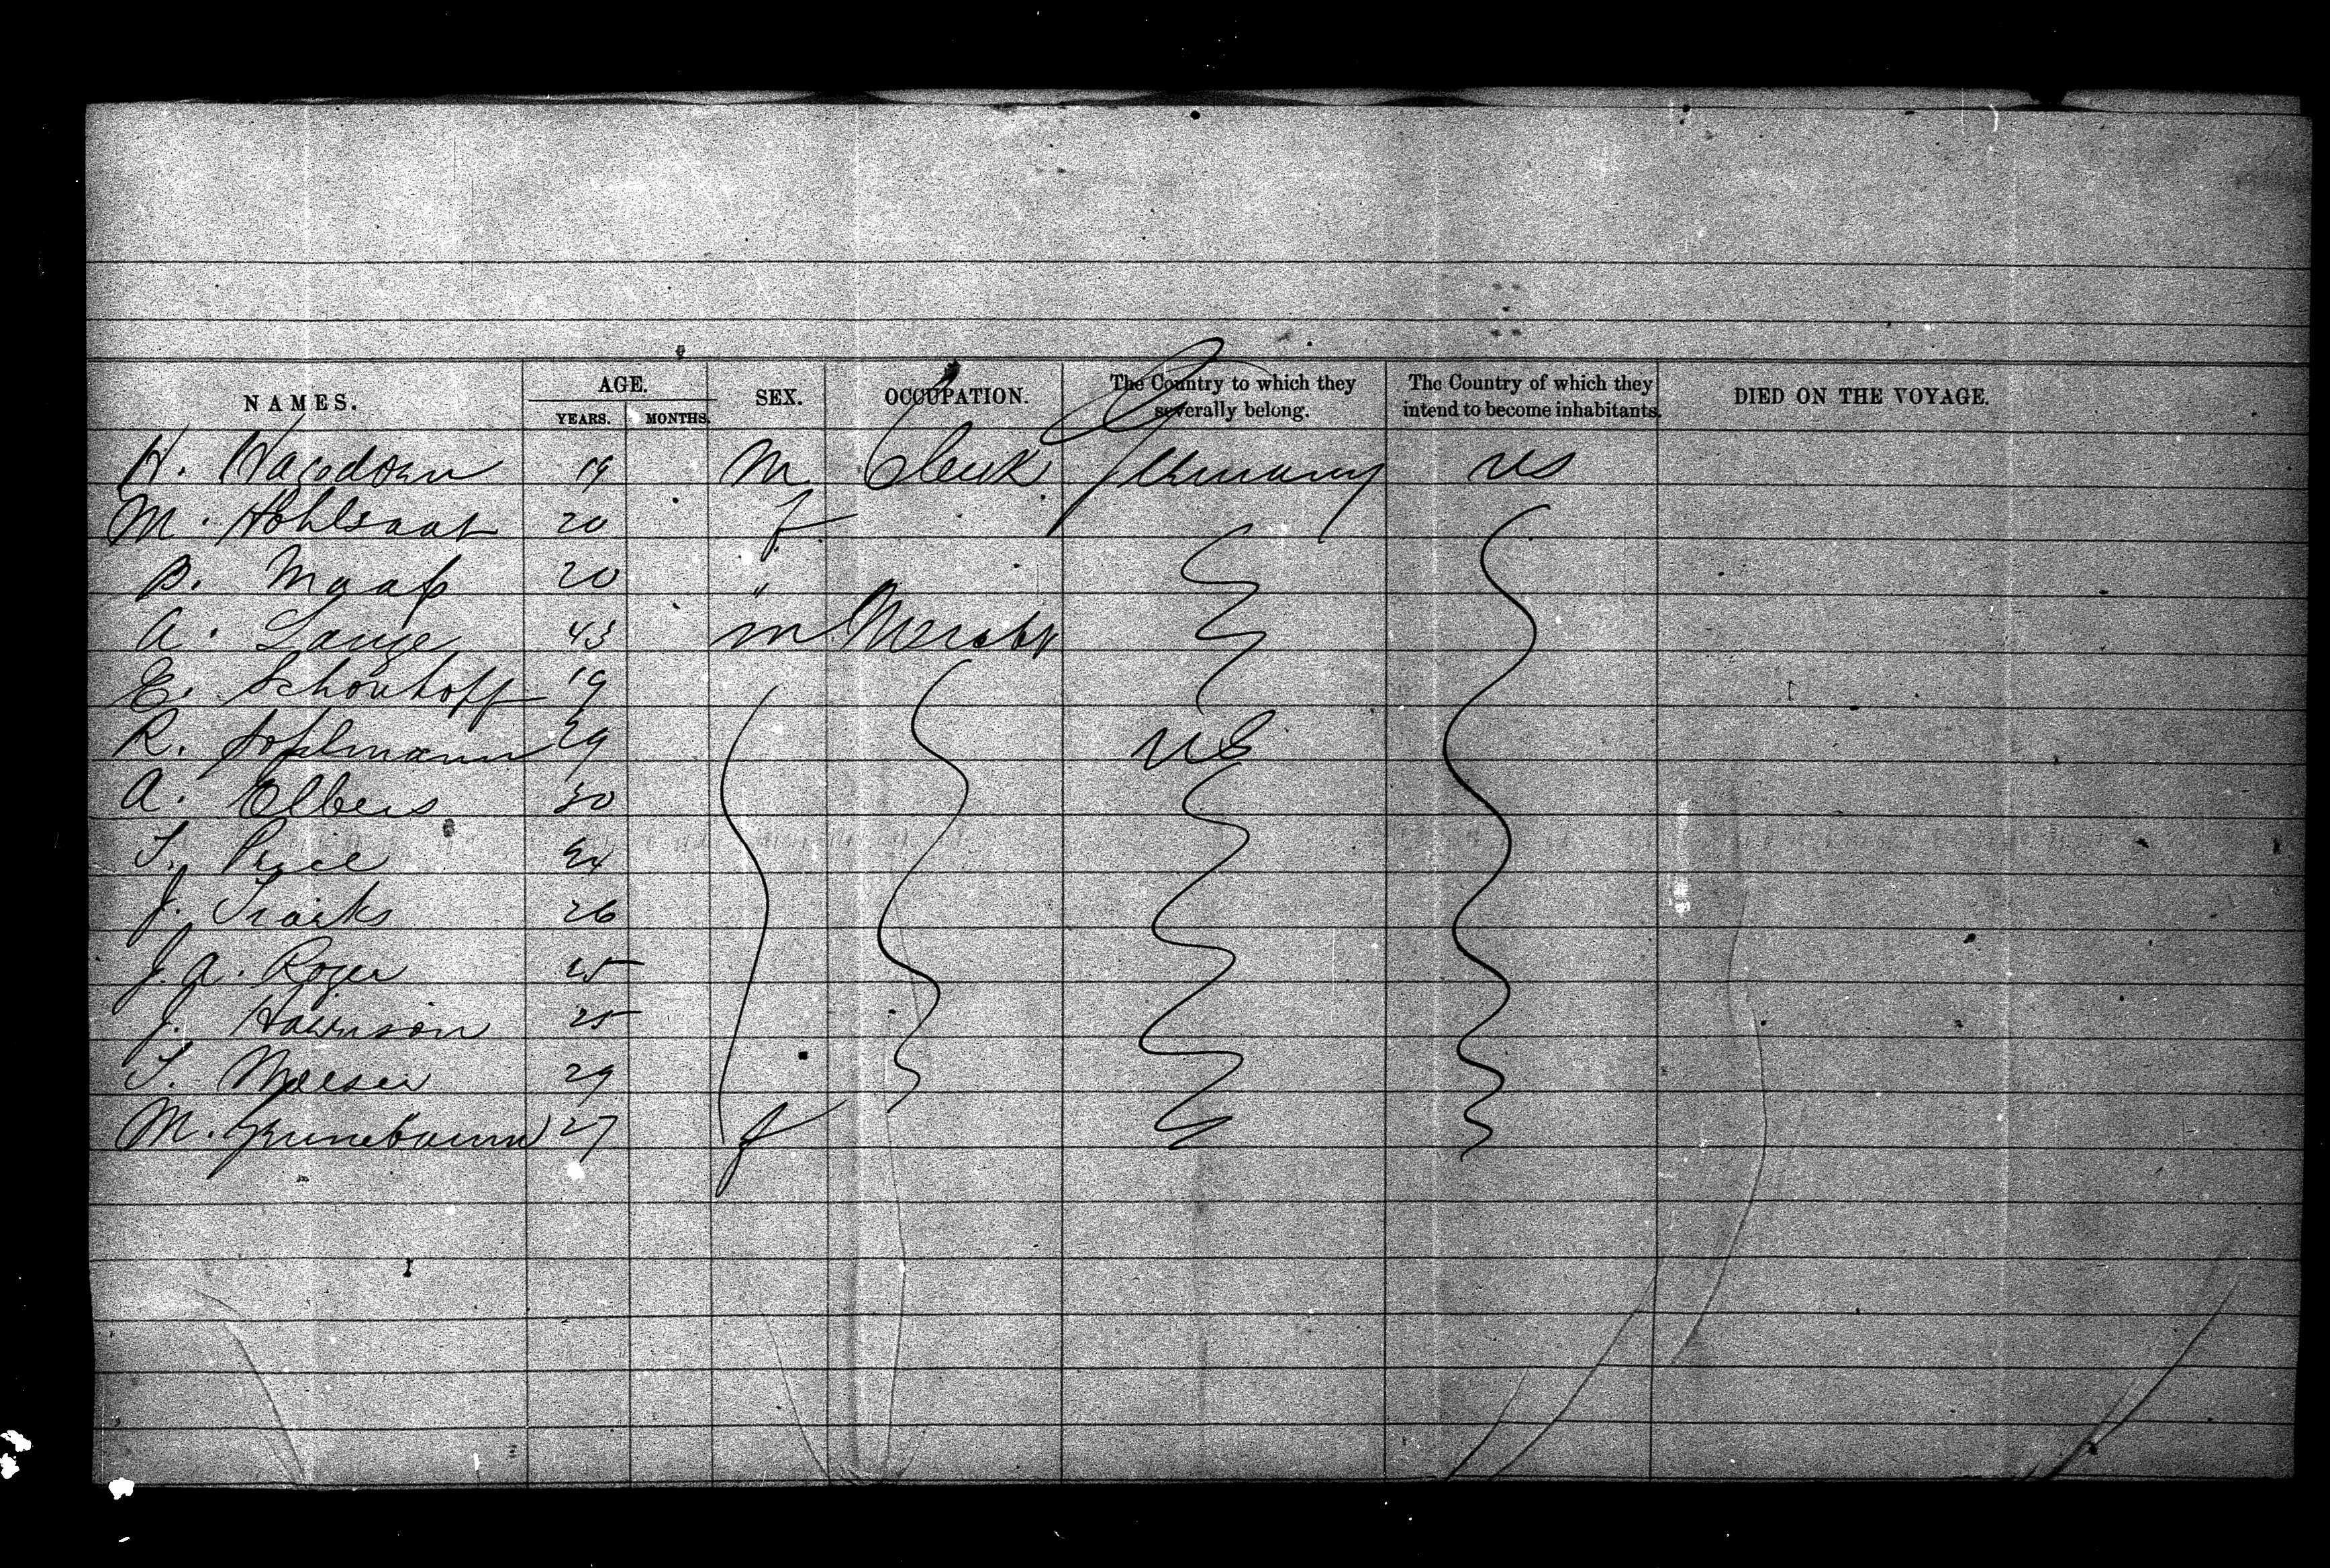 NAMES. AGE. SEX. OCCUPATION. The Country to which they severally belong. The Country of which they intend to become inhabitants. DIED ON THE VOYAGE.
YEARS. MONTHS.
H. Hagedorn 19 M Clerk Germany US
M. Hohlsaat 20 f
B. Maaß 20 "
A. Lange 43 m Mercht
E. Schonhoff 19
R. Pohlmann 29 US
A. Elbers 30
S. Price
J. 26
J. A. Roger 25
J. Harrison 25
S. 29
M. Grunebaum 27 f